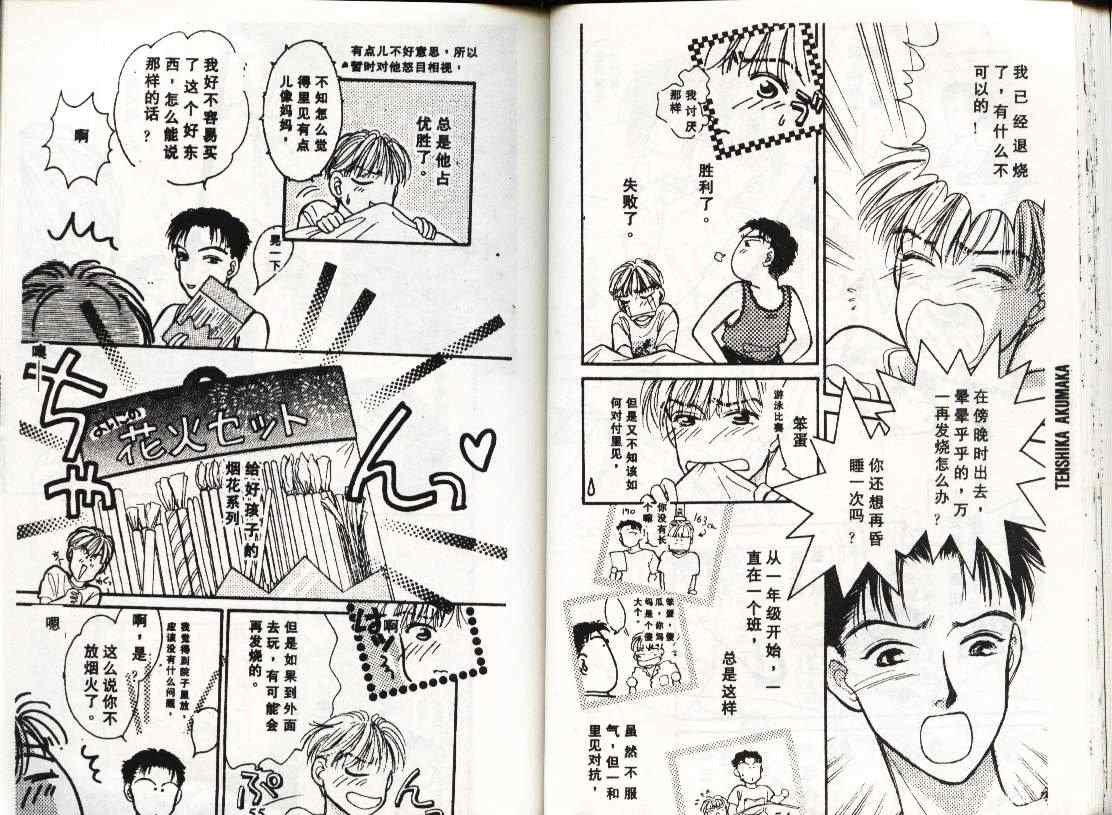 我已经退烧
了，有什么不
可以的！
TENSHIKA AKUMAKA
在傍晚时出去，
晕晕乎乎的，万
一再发烧怎么办？
你还想再昏
睡一次吗？
我讨厌
那样
胜利了。
失败了。
笨蛋
游泳比赛
但是又不知该如
何对付里见，
163cm
你没有长
个嘛
170
从一年级开始，一
直在一个班，
总是这样
笨蛋，傻
瓜，你骂
吗是个傻
大个。
虽然不服
气，但一和
里见对抗，
有点儿不好意思，所以
暂时对他怒目相视，
总是他占
优胜了。
不知怎么觉
得里见有点
儿像妈妈，
我好不容易买
了这个好东
西，怎么能说
那样的话？
啊
晃一下
噢
ちゃ
んっ
よいこの
花火セット
给好孩子的
烟花系列
啊
但是如果到外面
去玩，有可能会
再发烧的。
我觉得到院子里放，
应该没有什么问题，
啊，是？
这么说你不
放烟火了。
嗯